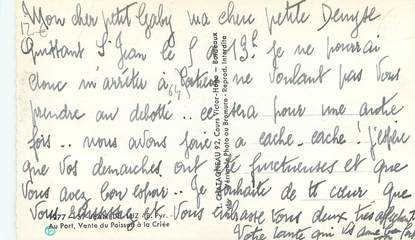 Mon cher petit Gaby ma chère petite Denyse
Quittant St Jean le 5 à 13h. je ne pourrai
donc m'arrêter à ne voulant pas vous
prendre au débotté .. ce sera pour une autre
fois .. nous avons joué à cache-cache ! j'espère
que vos démarches ont été fructueuses et que
vous avez bon espoir .. Je souhaite de tt cœur que
vous Vous embrasse tous deux très affect
Votre tante qui vs aime
CHATAGNEAU 92, Cours Victor-Hugo - Bordeaux
Véritable Photo au Bromure - Reprod. Interdite
Au Port, Vente du Poisson à la Criée